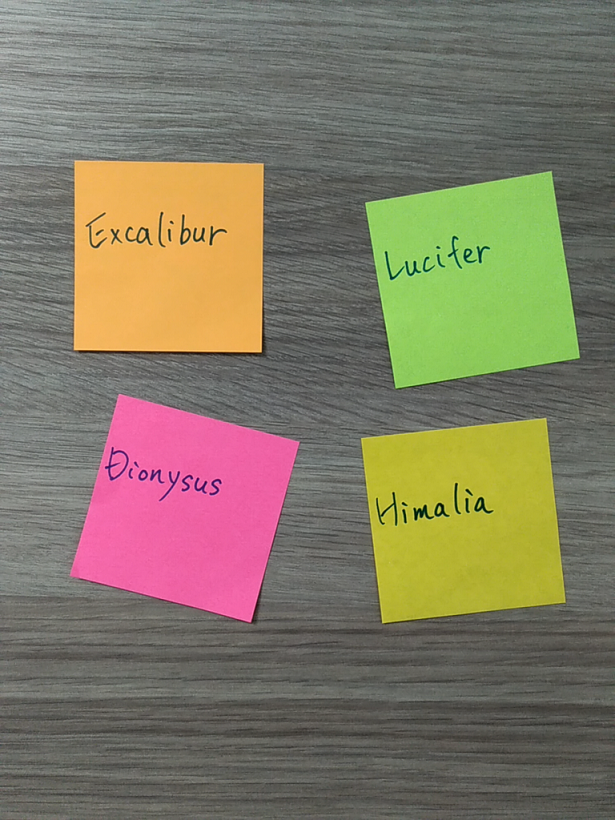 Excalibur
Lucifer
Dionysus
Himalia